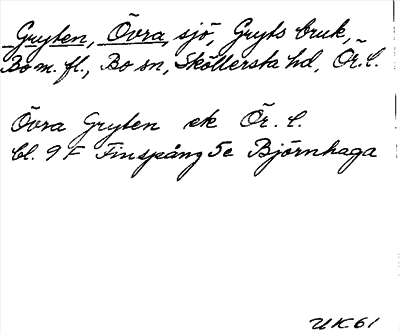 Gryten, Övra, sjö, Gryts bruk,
Bo m. fl., Bo sn, Sköllersta hd, Ör. l.
Övra Gryten ek Ör. l.
bl. 9 F Finspång 5e Björnhaga
UK61